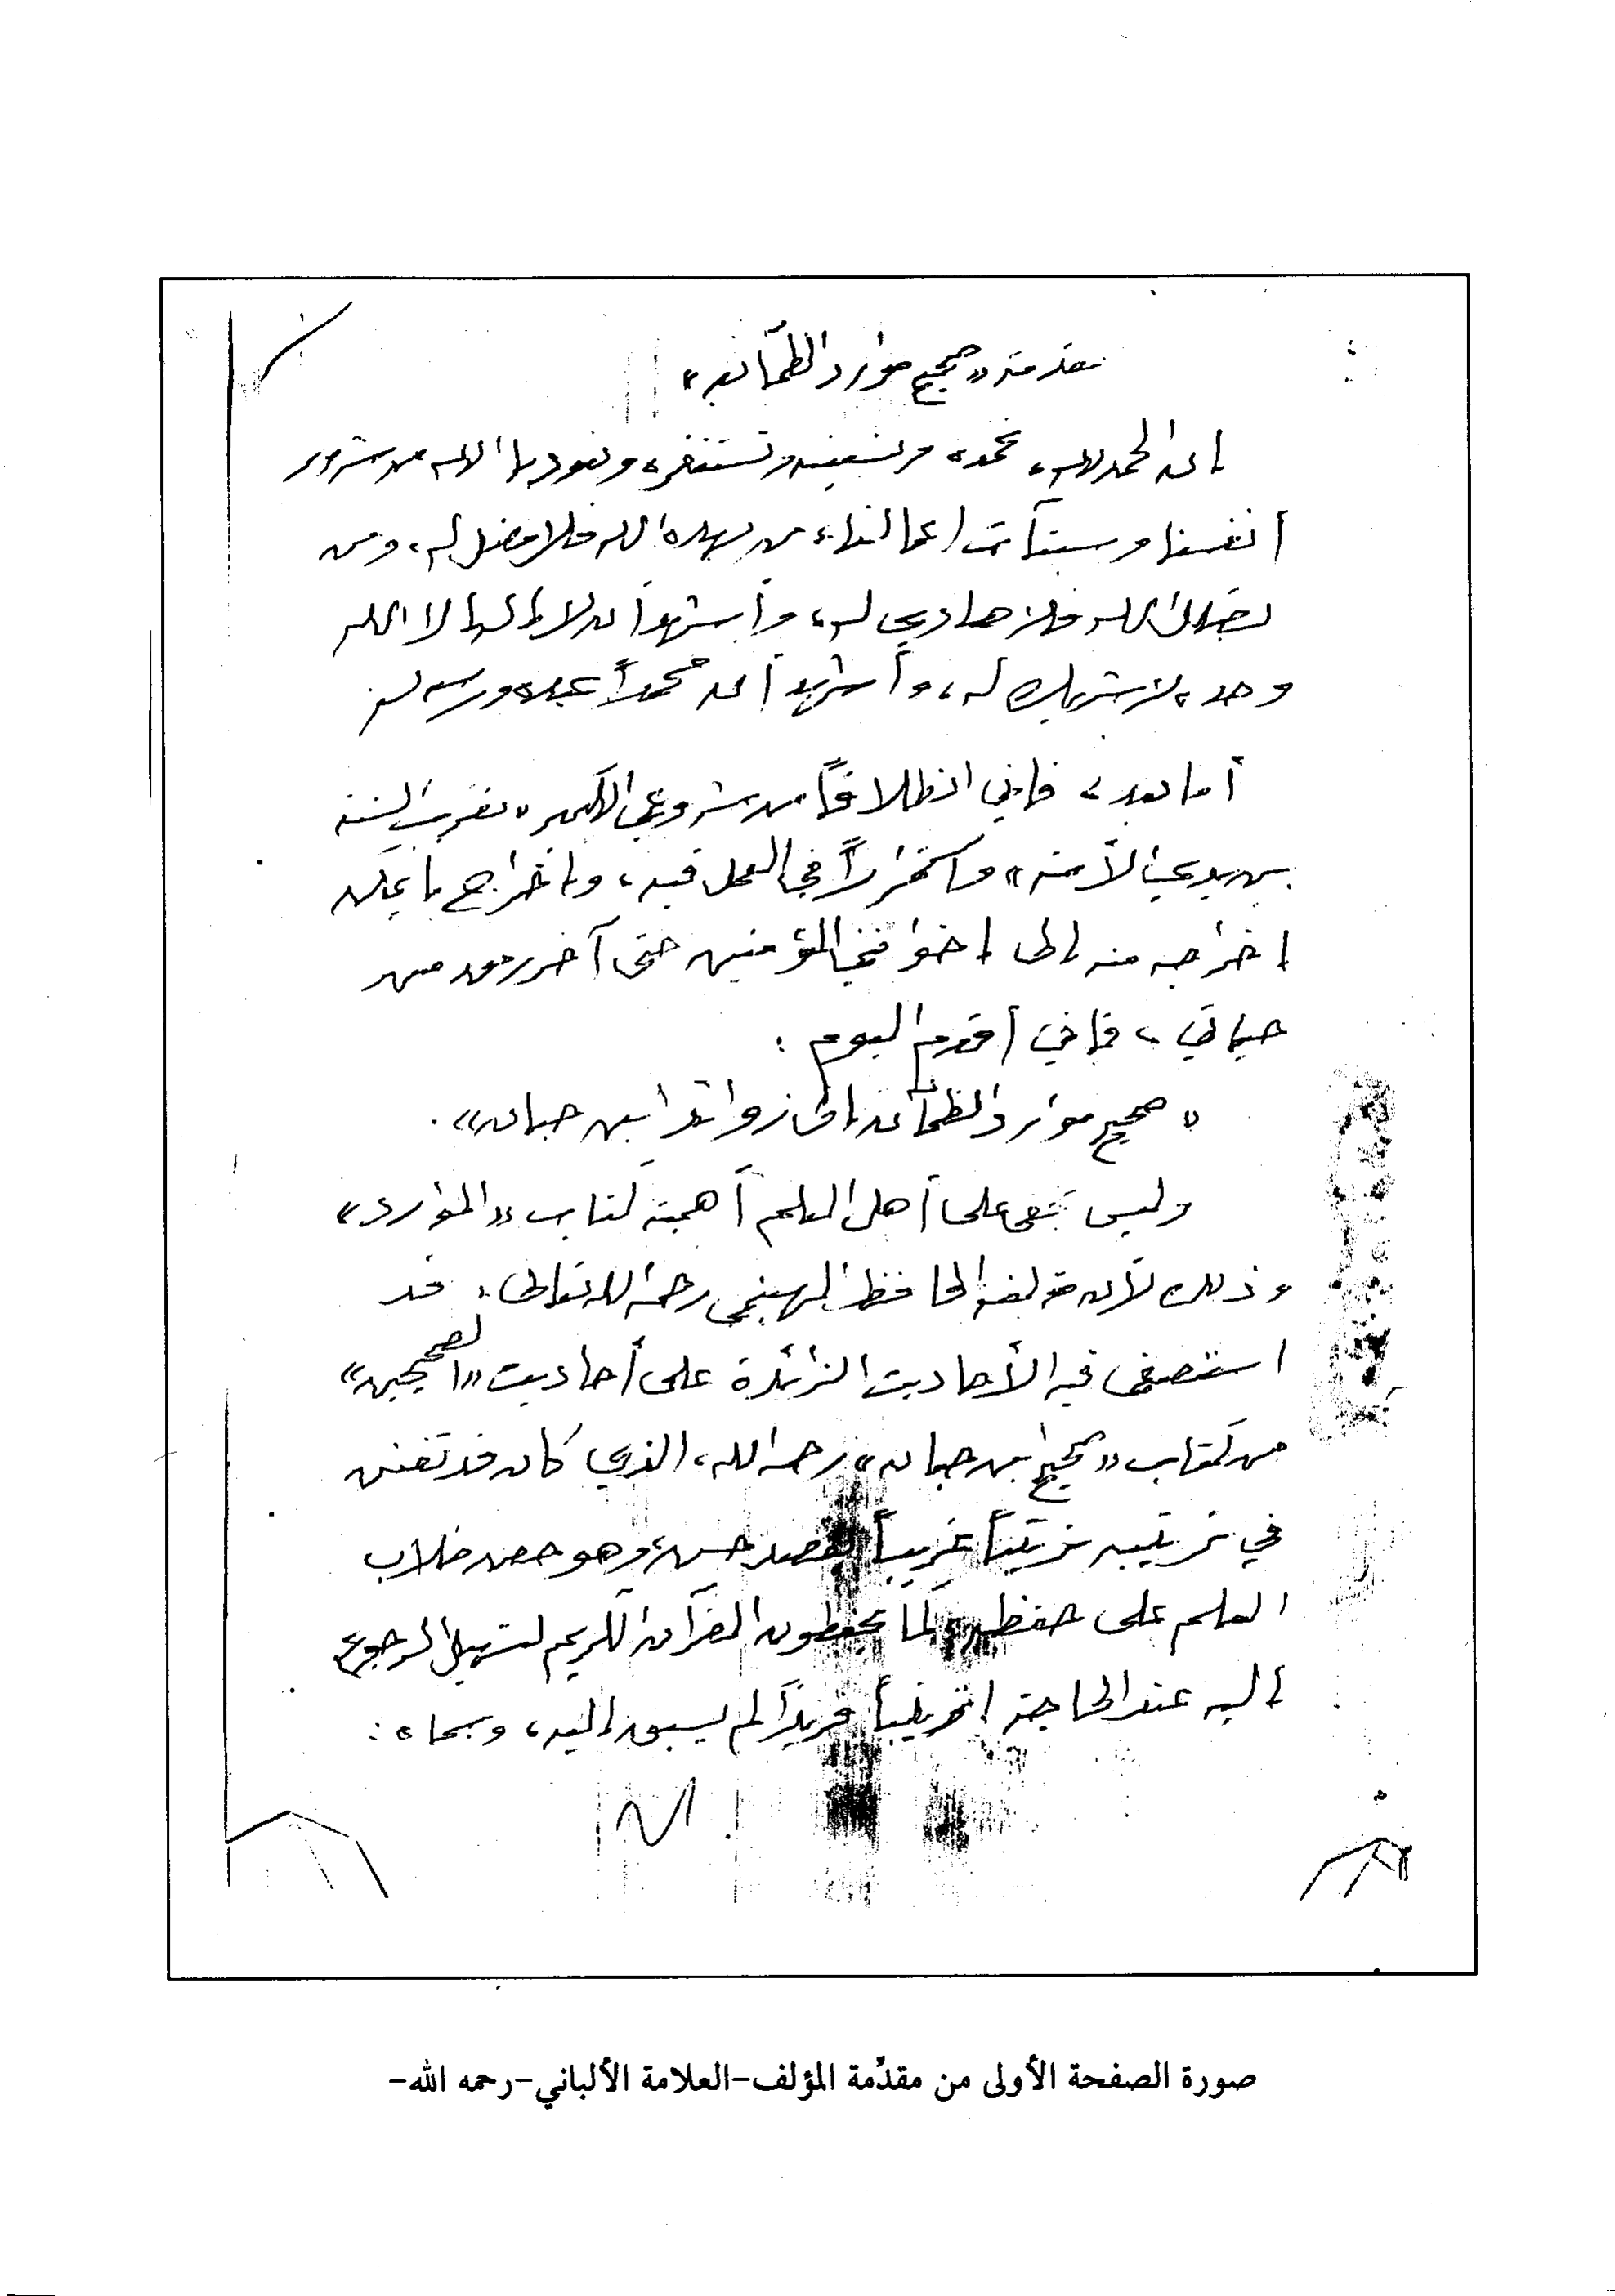 مقدمة «صحيح موارد الظمآن»
إن الحمد لله، نحمده ونستعينه ونستغفره ونعوذ بالله من شرور
أنفسنا وسيئات أعمالنا، من يهده الله فلا مضل له، ومن
يضلل الله فلا هادي له، وأشهد أن لا إله إلا الله
وحده لا شريك له، وأشهد أن محمداً عبده ورسوله
أما بعد، فإني انطلاقاً من مشروعي الكبير «تقريب السنة
بين يدي الأمة» واستمراراً في العمل فيه، وإخراج ما يمكن
إخراجه منه إلى إخواني المؤمنين حتى آخر رمق من
حياتي، فإني أقدم اليوم:
«صحيح موارد الظمآن إلى زوائد ابن حبان».
وليس يخفى على أهل العلم أهمية كتاب «الموارد»
وذلك لأن مؤلفه الحافظ الهيثمي رحمه الله تعالى، قد
استقصى فيه الأحاديث الزائدة على أحاديث «الصحيحين»
من كتاب «صحيح ابن حبان» رحمه الله، الذي كان قد تفنن
في ترتيبه ترتيباً غريباً لقصد حسن، وهو حض طلاب
العلم على حفظه كما يحفظون القرآن الكريم لتسهيل الرجوع
إليه عند الحاجة ترتيباً فريداً لم يسبق إليه، وسماه:
صورة الصفحة الأولى من مقدّمة المؤلف-العلامة الألباني-رحمه الله-